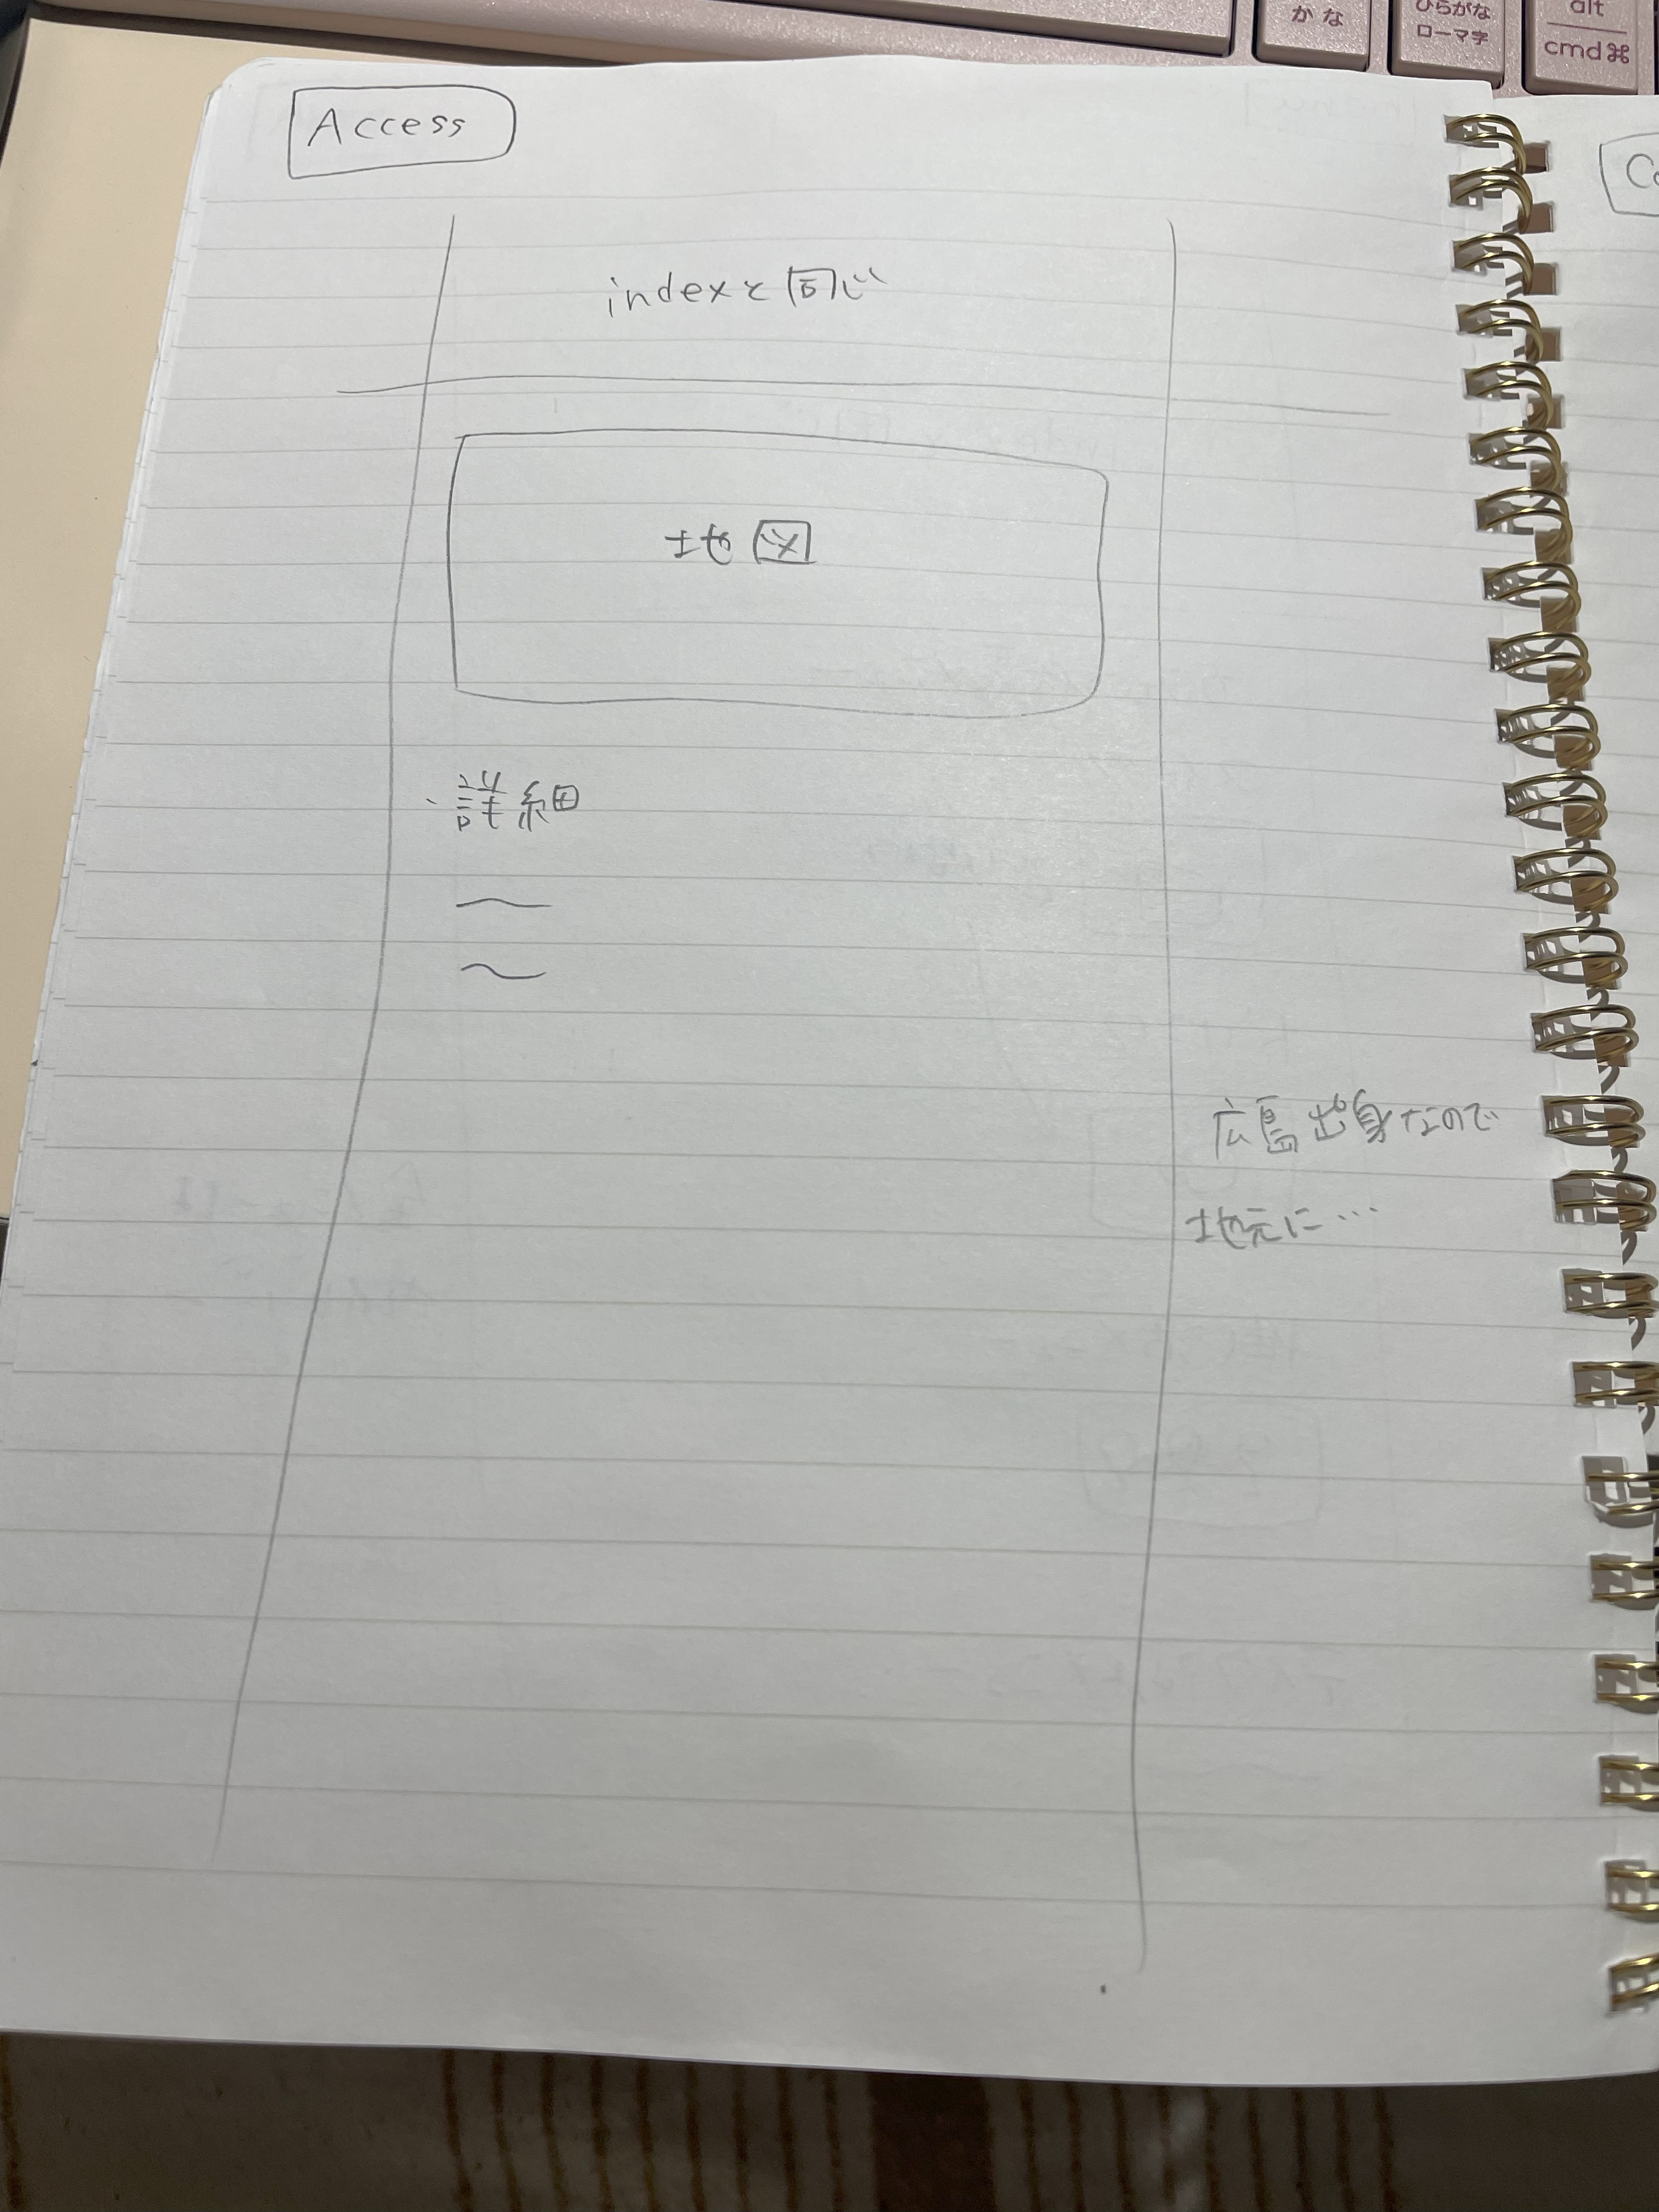 かな
ひらがな
ローマ字
alt
cmd⌘
Access
indexと同じ
地図
・詳細
〜
〜
広島出身なので
地元に…